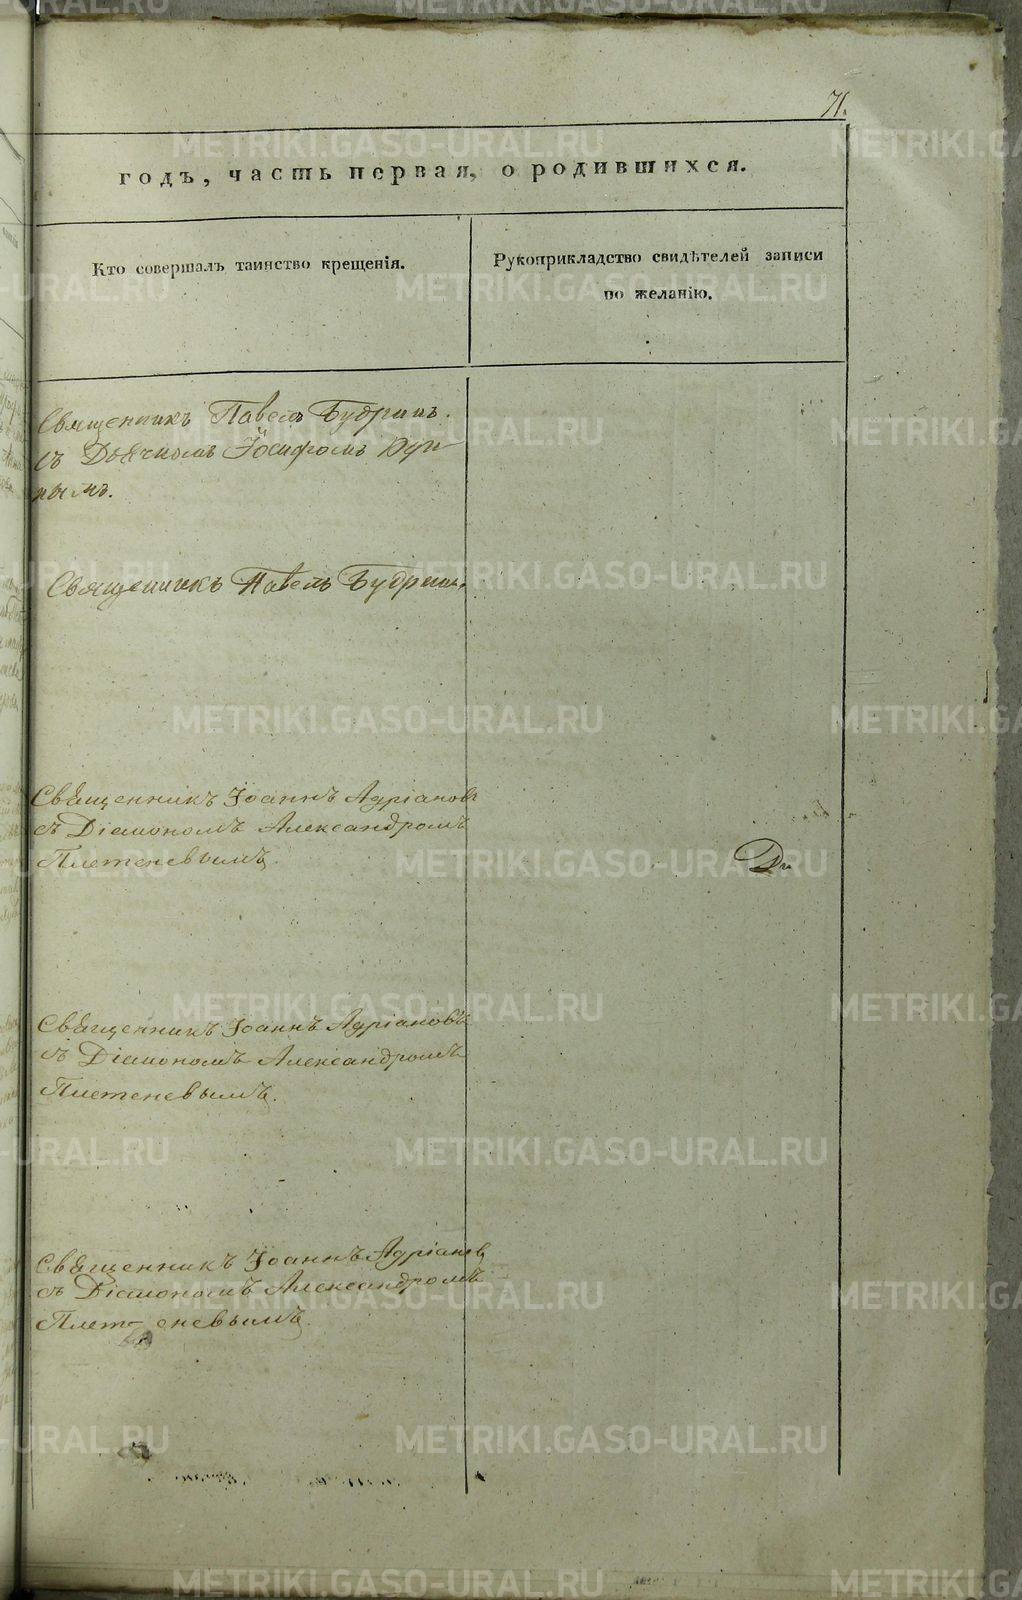 71.
годъ, часть первая, о родившихся.
Кто совершалъ таинство крещенія.
Рукоприкладство свидѣтелей записи
по желанію.
Священникъ Павелъ Будринъ.
съ Дьячкомъ Іосифомъ
нымъ.
Священникъ Павелъ Будринъ.
Священникъ Іоаннъ Адріановъ
съ Діакономъ Александромъ
Плетеневымъ.
Священникъ Іоаннъ Адріановъ
съ Діакономъ Александромъ
Плетеневымъ.
Священникъ Іоаннъ Адріановъ
съ Діакономъ Александромъ
Плет-еневымъ.
METRIKI.GASO-URAL.RU